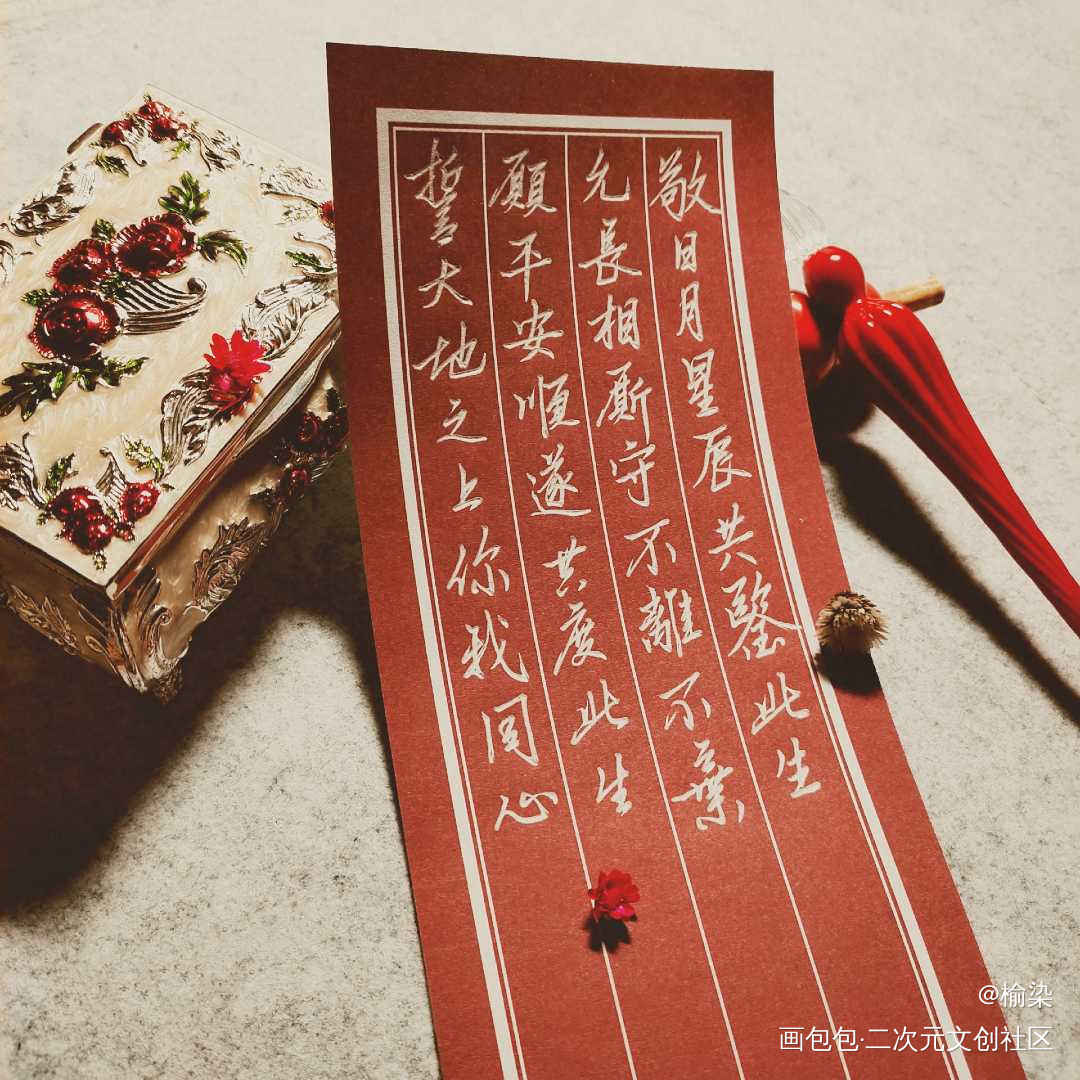 敬日月星辰共鑒此生
允長相厮守不離不棄
願平安順遂共度此生
誓大地之上你我同心
@榆染
画包包·二次元文创社区